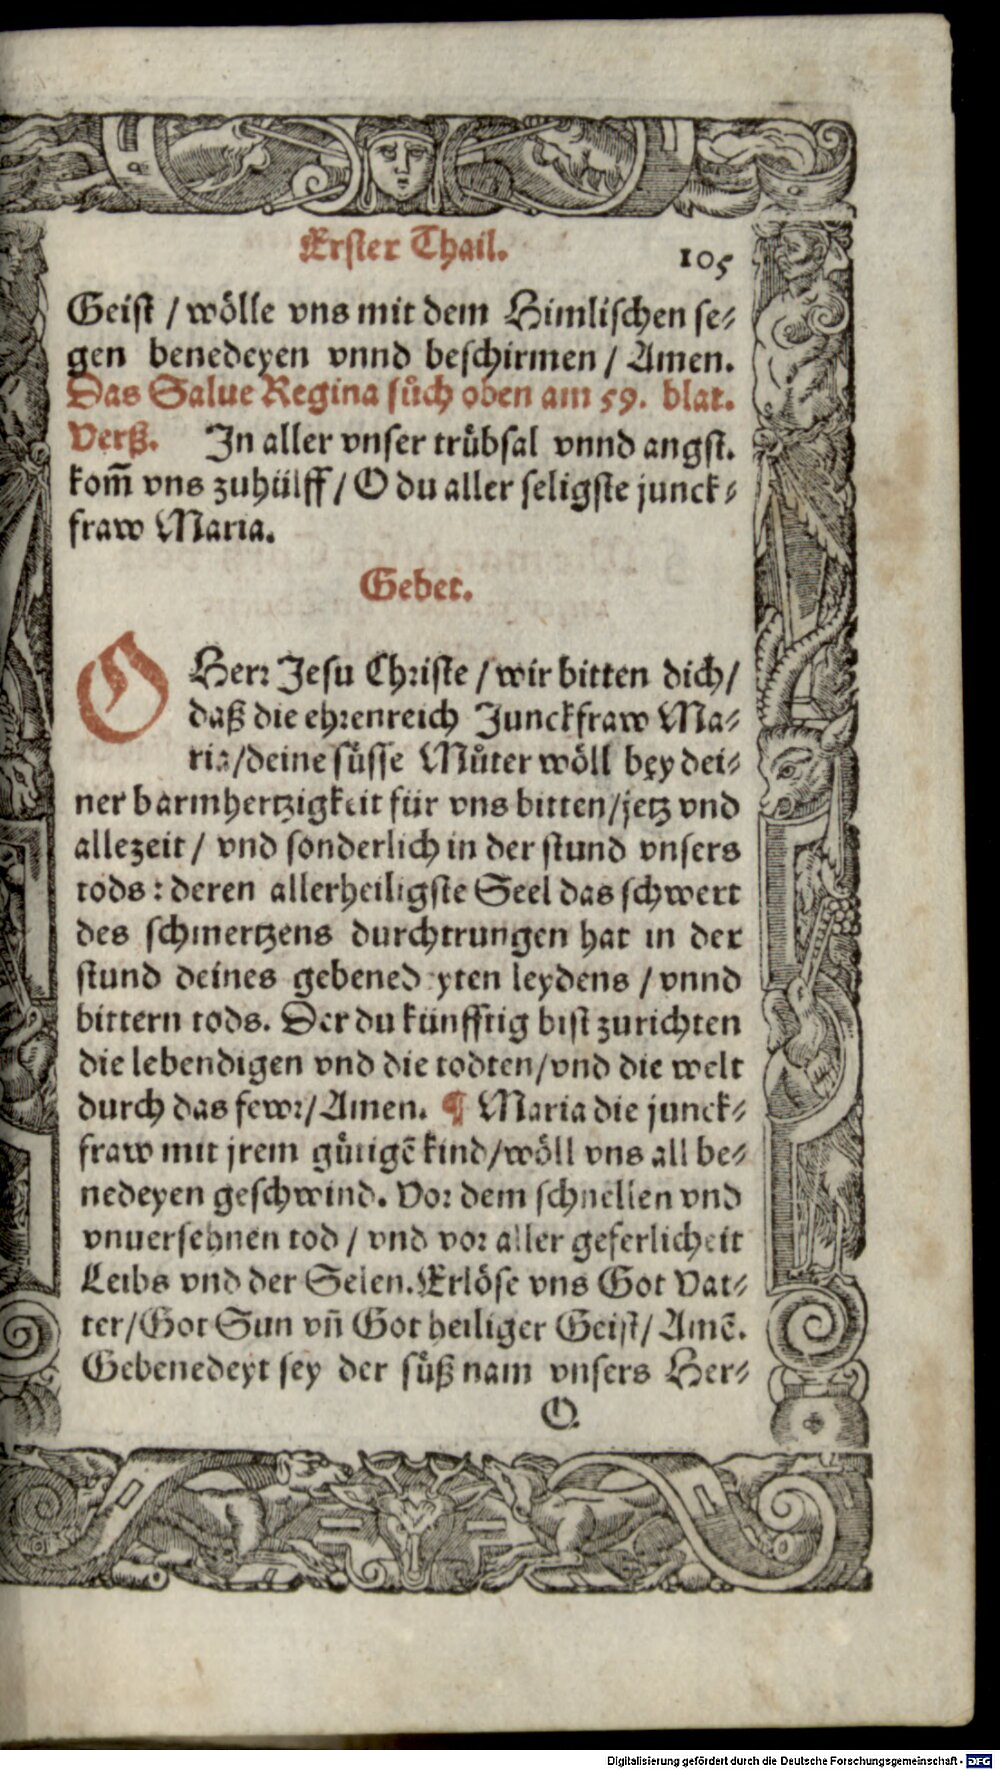 Erster Thail. 105
Geist / wölle vns mit dem Himlischen se⸗
gen benedeyen vnnd beschirmen / Amen.
Das Salue Regina sůch oben am 59. blat.
Verß. In aller vnser trübsal vnnd angst.
kom̄ vns zuhülff / O du aller seligste junck⸗
fraw Maria.
Gebet.
O Herr Jesu Christe / wir bitten dich /
daß die ehrenreich Junckfraw Ma⸗
ria / deine süsse Můter wöll bey dei⸗
ner barmhertzigkeit für vns bitten / jetz vnd
allezeit / vnd sonderlich in der stund vnsers
tods : deren allerheiligste Seel das schwert
des schmertzens durchtrungen hat in der
stund deines gebenedeyten leydens / vnnd
bittern tods. Der du künfftig bist zurichten
die lebendigen vnd die todten / vnd die welt
durch das fewr / Amen. ¶ Maria die junck⸗
fraw mit jrem gütigē kind / wöll vns all be⸗
nedeyen geschwind. Vor dem schnellen vnd
vnuersehnen tod / vnd vor aller geferlicheit
Leibs vnd der Selen. Erlöse vns Got Vat⸗
ter / Got Sun vn̄ Got heiliger Geist / Amē.
Gebenedeyt sey der süß nam vnsers Her⸗
O
Digitalisierung gefördert durch die Deutsche Forschungsgemeinschaft - DFG